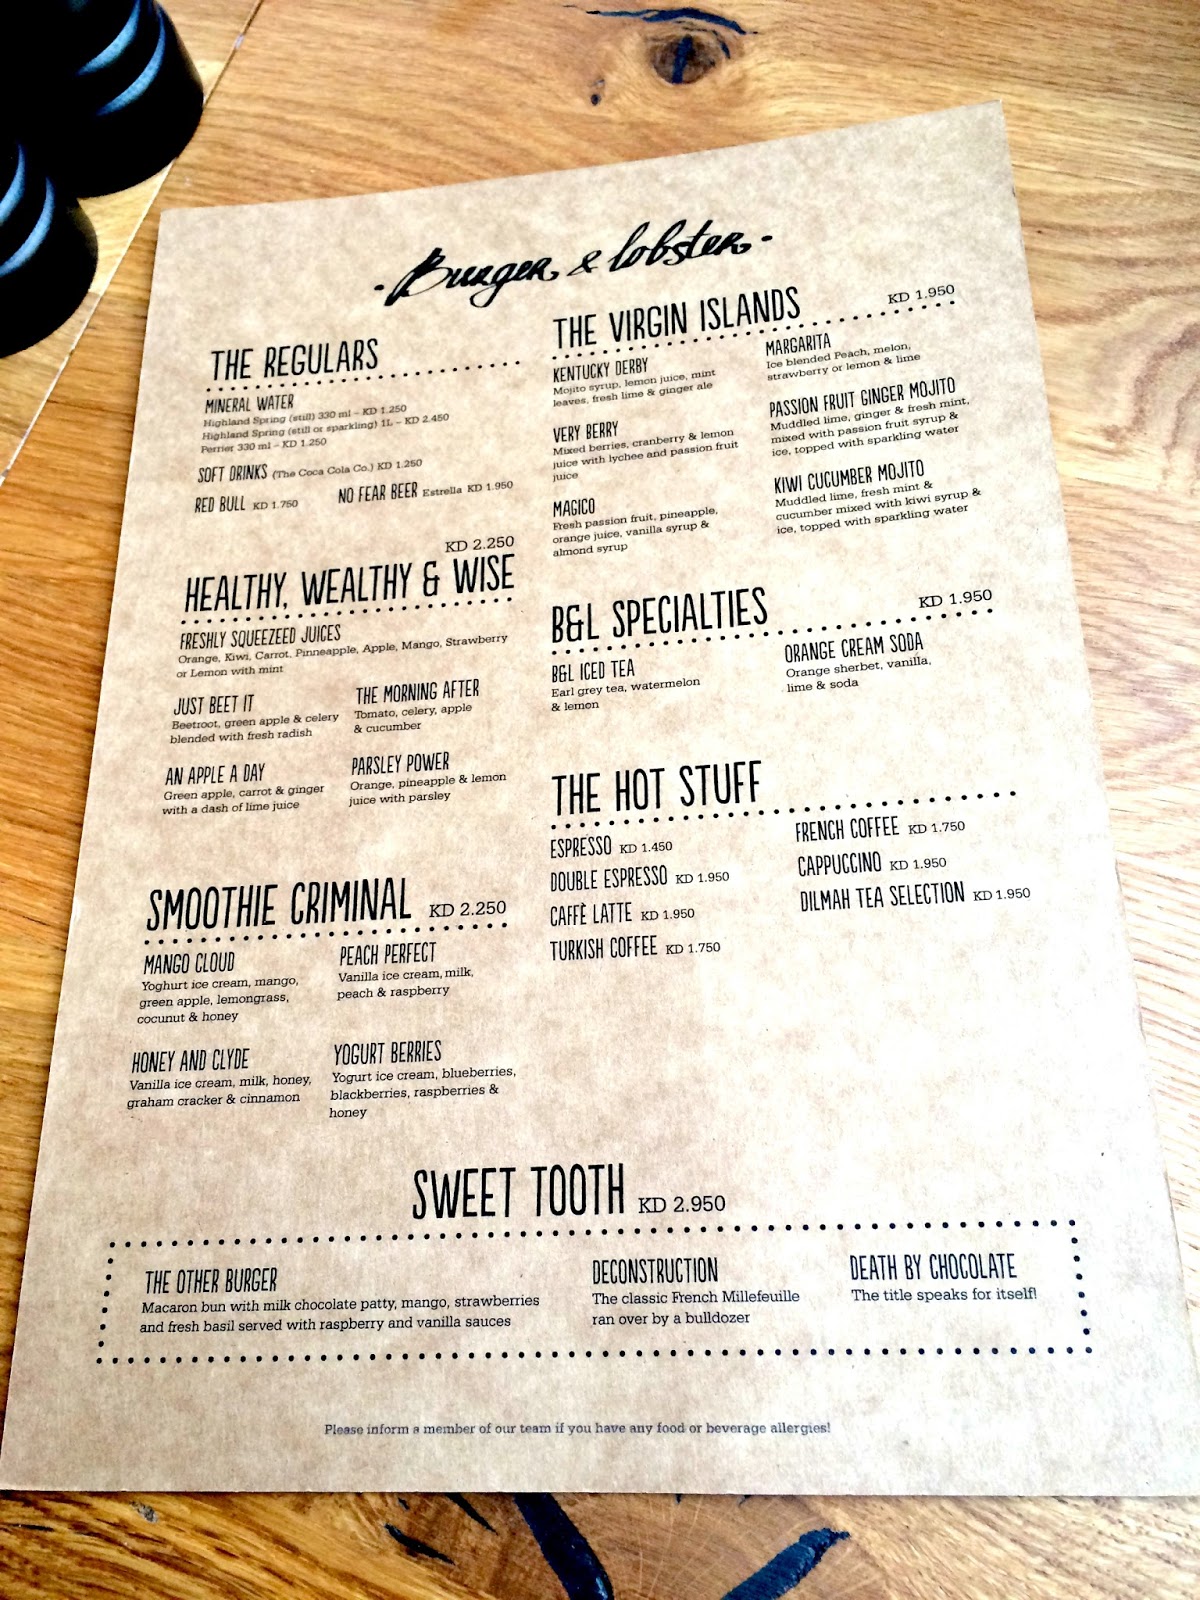 · Burger & lobster ·
THE REGULARS
MINERAL WATER
Highland Spring (still) 330 ml – KD 1.250
Highland Spring (still or sparkling) 1L – KD 2.450
Perrier 330 ml – KD 1.250
SOFT DRINKS (The Coca Cola Co.) KD 1.250
RED BULL KD 1.750
NO FEAR BEER Estrella KD 1.950
KD 2.250
HEALTHY, WEALTHY & WISE
FRESHLY SQUEEZEED JUICES
Orange, Kiwi, Carrot, Pinneapple, Apple, Mango, Strawberry
or Lemon with mint
JUST BEET IT
Beetroot, green apple & celery
blended with fresh radish
THE MORNING AFTER
Tomato, celery, apple
& cucumber
AN APPLE A DAY
Green apple, carrot & ginger
with a dash of lime juice
PARSLEY POWER
Orange, pineapple & lemon
juice with parsley
SMOOTHIE CRIMINAL KD 2.250
MANGO CLOUD
Yoghurt ice cream, mango,
green apple, lemongrass,
cocunut & honey
PEACH PERFECT
Vanilla ice cream, milk,
peach & raspberry
HONEY AND CLYDE
Vanilla ice cream, milk, honey,
graham cracker & cinnamon
YOGURT BERRIES
Yogurt ice cream, blueberries,
blackberries, raspberries &
honey
THE VIRGIN ISLANDS KD 1.950
KENTUCKY DERBY
Mojito syrup, lemon juice, mint
leaves, fresh lime & ginger ale
VERY BERRY
Mixed berries, cranberry & lemon
juice with lychee and passion fruit
juice
MAGICO
Fresh passion fruit, pineapple,
orange juice, vanilla syrup &
almond syrup
MARGARITA
Ice blended Peach, melon,
strawberry or lemon & lime
PASSION FRUIT GINGER MOJITO
Muddled lime, ginger & fresh mint,
mixed with passion fruit syrup &
ice, topped with sparkling water
KIWI CUCUMBER MOJITO
Muddled lime, fresh mint &
cucumber mixed with kiwi syrup &
ice, topped with sparkling water
B&L SPECIALTIES KD 1.950
B&L ICED TEA
Earl grey tea, watermelon
& lemon
ORANGE CREAM SODA
Orange sherbet, vanilla,
lime & soda
THE HOT STUFF
ESPRESSO KD 1.450
DOUBLE ESPRESSO KD 1.950
CAFFÈ LATTE KD 1.950
TURKISH COFFEE KD 1.750
FRENCH COFFEE KD 1.750
CAPPUCCINO KD 1.950
DILMAH TEA SELECTION KD 1.950
SWEET TOOTH KD 2.950
THE OTHER BURGER
Macaron bun with milk chocolate patty, mango, strawberries
and fresh basil served with raspberry and vanilla sauces
DECONSTRUCTION
The classic French Millefeuille
ran over by a bulldozer
DEATH BY CHOCOLATE
The title speaks for itself!
Please inform a member of our team if you have any food or beverage allergies!